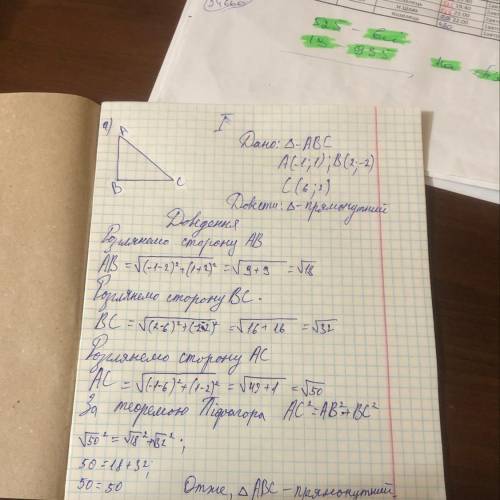 I
а)
A
B
C
Дано: Δ-ABC
A(-1;1); B(2;-2)
C(6;2)
Довести: Δ-прямокутний
Доведення
Розглянемо сторону AB
AB = √(-1-2)²+(1+2)² = √9+9 = √18
Розглянемо сторону BC.
BC = √(2-6)²+(-2-2)² = √16+16 = √32
Розглянемо сторону AC
AC = √(-1-6)²+(1-2)² = √49+1 = √50
За теоремою Піфагора AC²=AB²+BC²
√50² = √18²+√32²;
50=18+32;
50=50 Отже, ΔABC-прямокутний